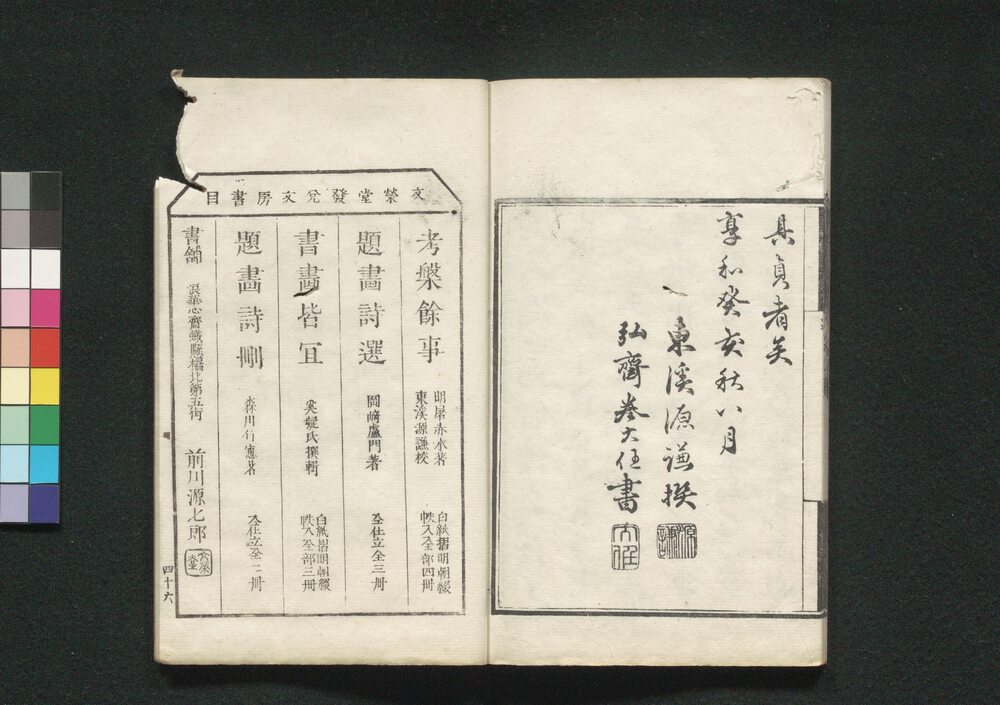 具眞者矣
享和癸亥秋八月
東溪源謙撰
源謙
弘齋巻大任書
大任
文榮堂發兌文房書目
考槃餘事
明屠赤水著
東溪源謙校
白紙摺明朝綴
帙入全部四冊
題畵詩選
岡﨑廬門著
仝仕立全三冊
書畵皆宜
奚疑氏撰輯
白紙摺明朝綴
帙入全部三冊
題畵詩刪
森川竹窓著
仝仕立全二冊
書舖
浪華心齋鐵橋北第五街
前川源七郎
文榮堂
四十六